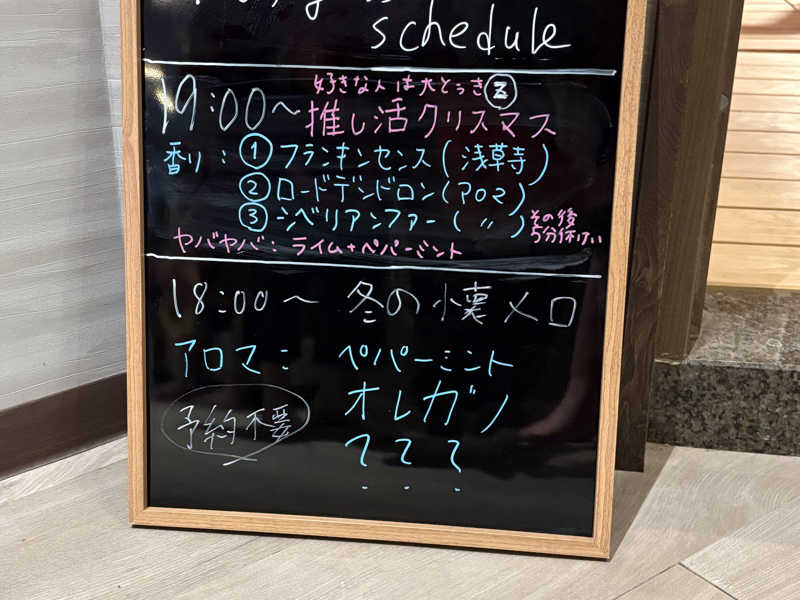 schedule
好きな人は大とっき ③
19:00〜 推し活クリスマス
香り: ① フランキンセンス(浅草寺)
② ロードデンドロン(アロマ)
③ シベリアンファー(〃) その後
5分休けい
ヤバヤバ: ライム+ペパーミント
18:00〜 冬の懐メロ
アロマ: ペパーミント
予約不要 オレガノ
???